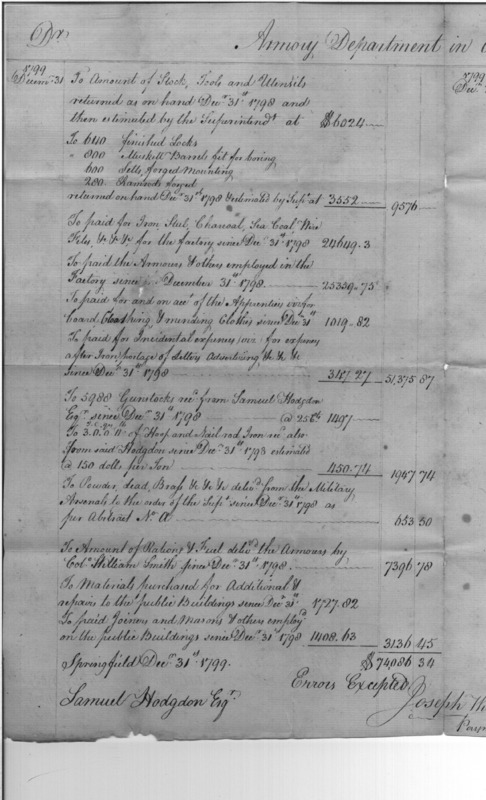 Dr. Armory Department in
1799
Decem. 31 To Amount of Stock, Tools and Utensils
returned as on hand Decr. 31st 1798 and
then estimated by the Superintendt at $6024
To 640 finished Locks
" 800 Muskett Barrels fit for boring
600 Setts forged Mounting
280 Ramrods forged
returned on hand Decr. 31st 1798 & estimated by Supt. at 3552 9576
To paid for Iron, Steel, Charcoal, Sea Coal,
Files, &c &c &c for the factory since Decr. 31st 1798 24649.3
To paid the Armourers & others employed in the
Factory since December 31st 1798. 25339.75
To paid for and on acct. of the Apprentices viz for
board Cloathing & mending Clothes since Decr. 31st 1019.82
To paid for Incidental expenses (viz) for expenses
after Iron, postage of letters Advertising &c &c &c
since Decr. 31st 1798 317.27 51,375 87
To 5988 Gunlocks recd. from Samuel Hodgdon
Esqr. since Decr. 31st 1798 @ 25 Cts 1497
To 3.0.0.11 of Hoop and Nail rod Iron recd. also
from said Hodgdon since Decr. 31st 1798 estimated
@ 150 dolls per Ton 450.74 1947 74
To Powder, Lead, Brass &c &c &c delivd. from the Military
Arsenals to the order of the Supt. since Decr. 31st 1798 as
per Abstract No. A 653 30
To Amount of Rations & Fuel delivd. the Armourers by
Colo. William Smith since Decr. 31st 1798. 7396 78
To Materials purchased for Additional &
repairs to the public Buildings since Decr. 31st 1727.82
To paid Joiners and Masons & others employd.
on the public Buildings since Decr. 31st 1798 1408.63 3136 45
$74086 34
Springfield Decr. 31st 1799.
Errors Excepted
Samuel Hodgdon Esqr.
Joseph
1799
Dec